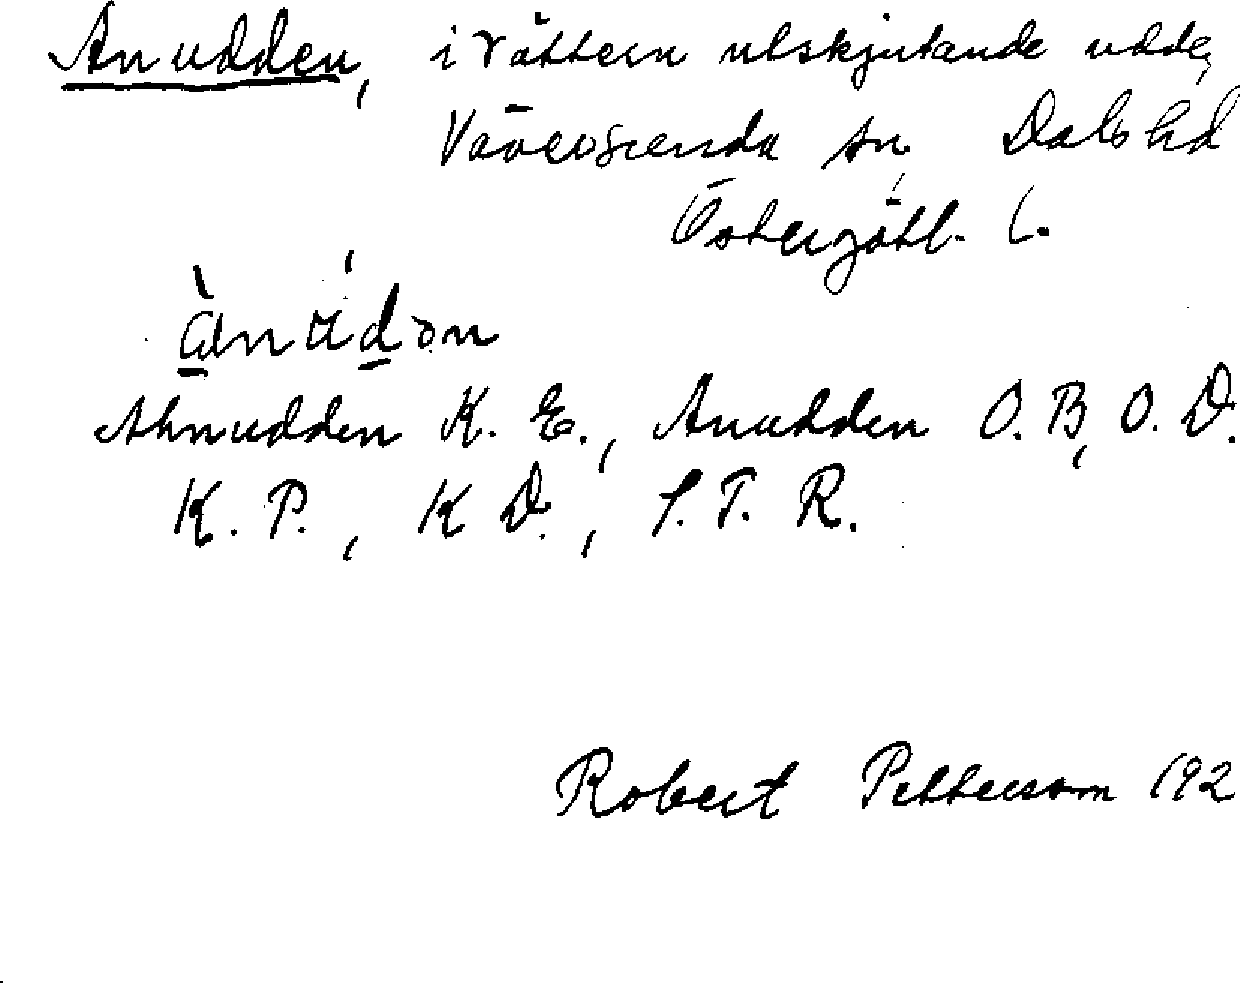 Anudden, i Vättern utskjutande udde,
Väversunda sn, Dals hd
Östergötl. l.
Ahnudden K. E., Anudden O. B, O. D.
K. P., K D., S. T. R.
Robert Pettersson 192